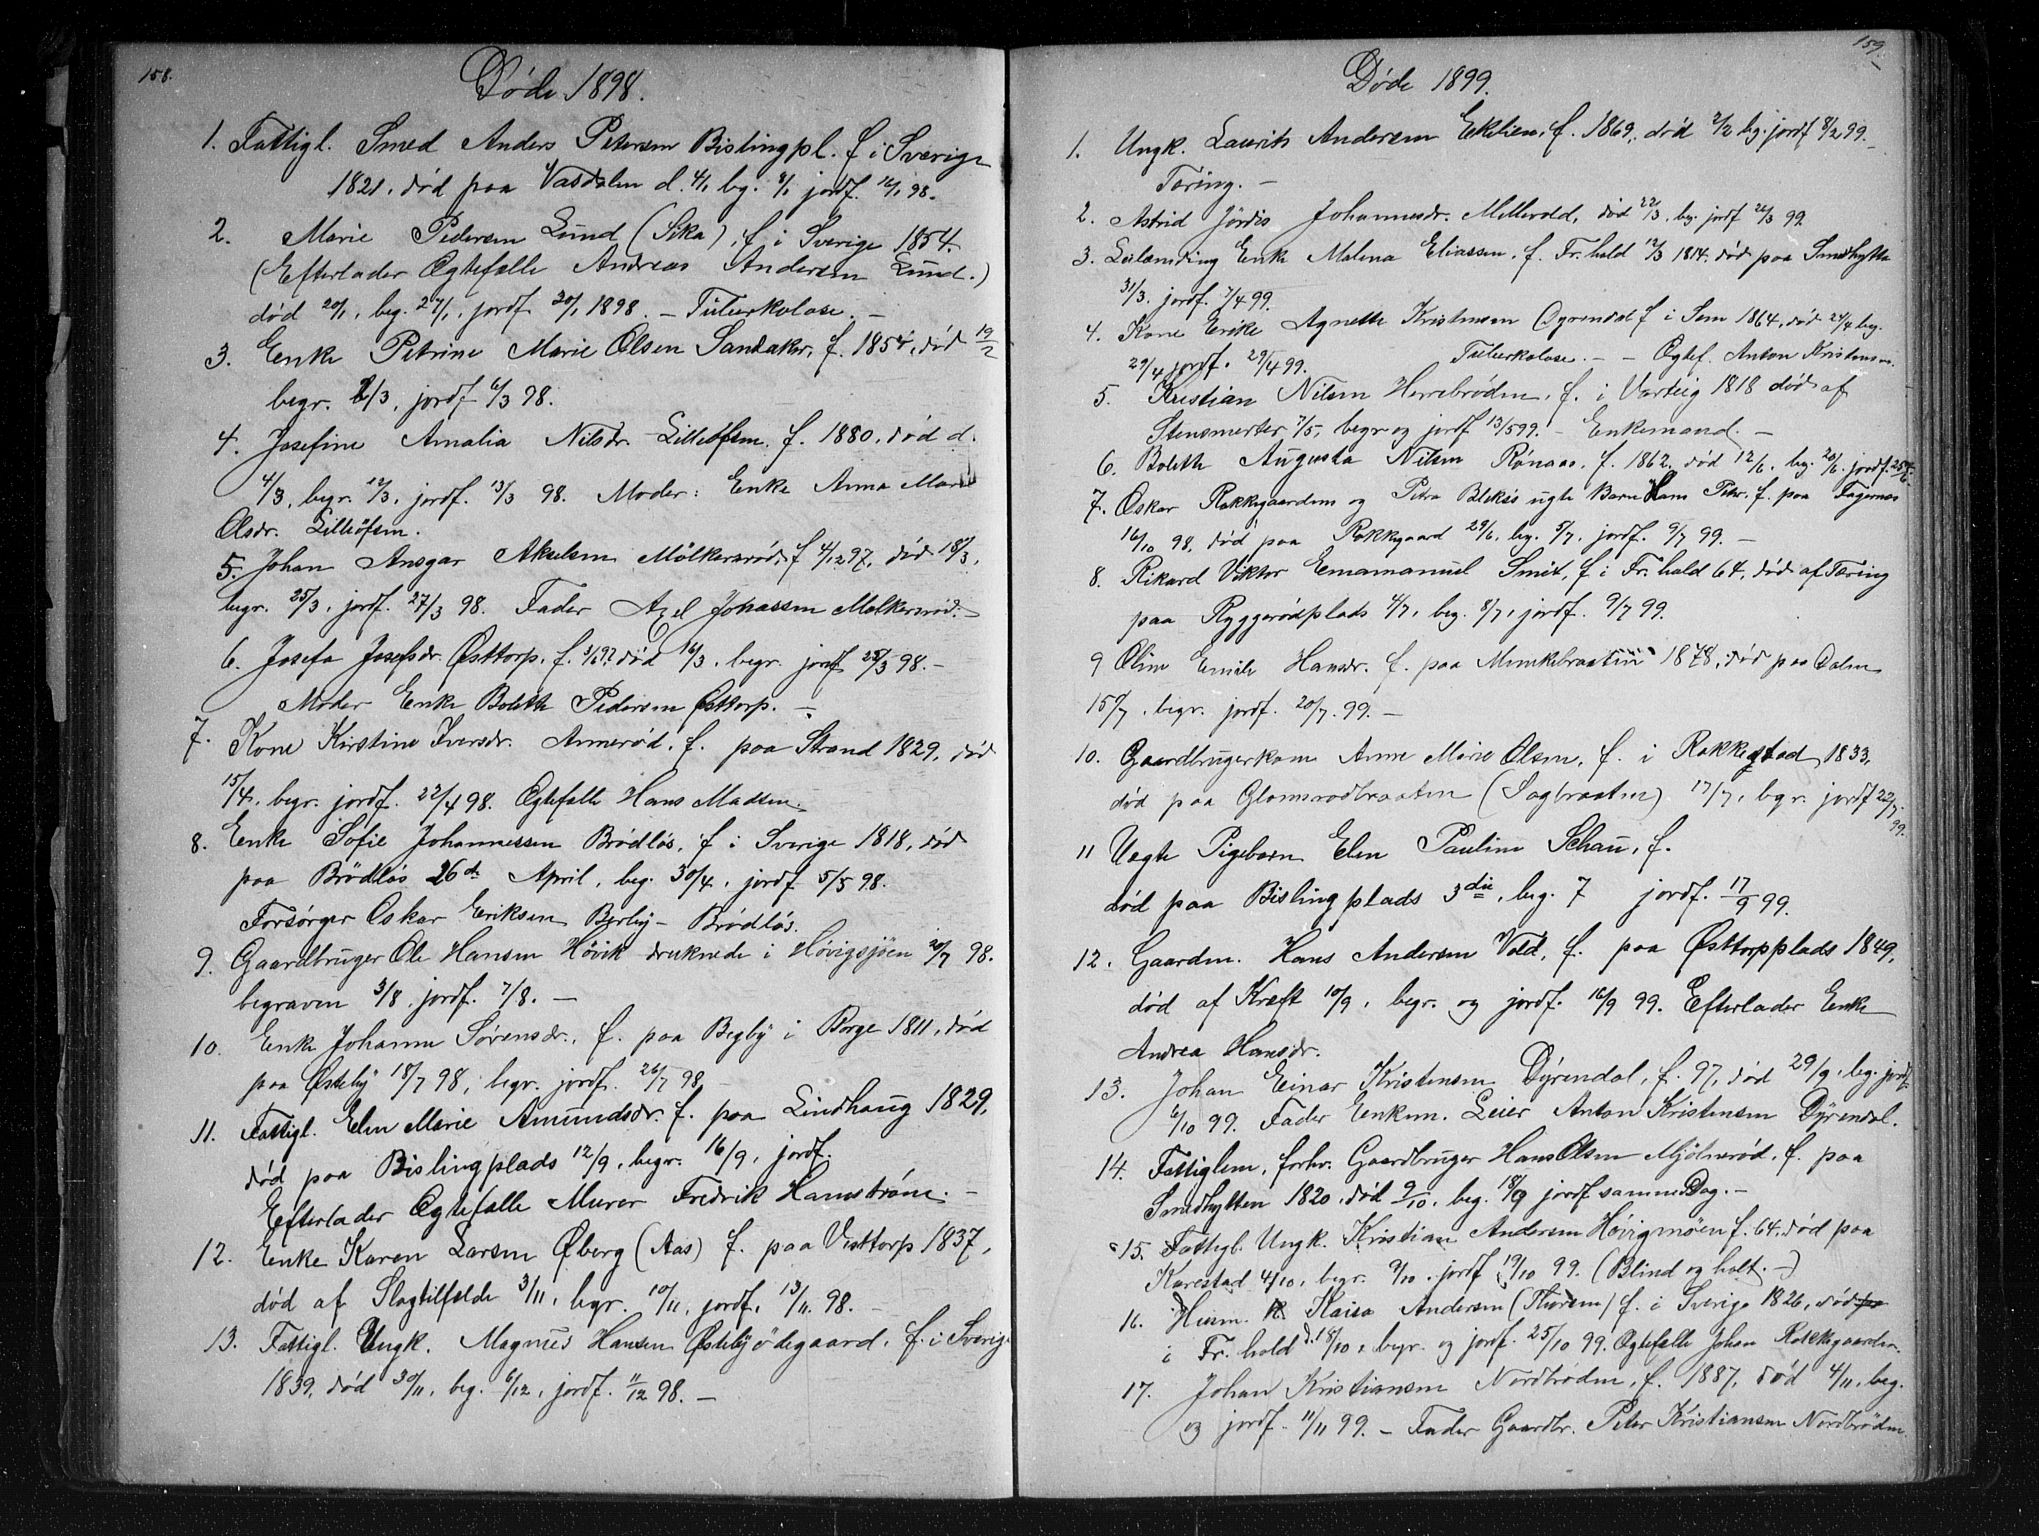 158.
Døde 1898.
1. Fattigl. Smed Anders Petersen Bislingpl. f. i Sverige
1821, død paa Vasdalen d. 4/1 beg. 8/1 jordf. 12/1 98.
2. Marie Pedersen Lund (Sika), f. i Sverige 1854.
(Efterlader Ægtefælle Andreas Andersen Lund.)
død 20/1, beg. 27/1, jordf. 30/1 1898. – Tuberkulose. –
3. Enke Petrine Marie Olsen Sandaker, f. 1854, død 19/2
begr. 2/3, jordf. 6/3 98.
4. Josefine Amalia Nilsdr. Lilleøfsen. f. 1880, død d.
4/3, begr. 12/3, jordf. 13/3 98. Moder: Enke Anna Marie
Olsdr. Lilleöfsen.
5. Johan Ansgar Akselsen Mölkersrød, f. 4/12 97, død 18/3,
begr. 25/3, jordf. 27/3 98. Fader Axel Johansen Mølkersrød. –
6. Josefa Josefsdr. Østtorp, f. 3/6 97, død 16/3, begr. jordf 25/3 98. –
Moder Enke Bolette Pedersen Østtorp. –
7. Kone Kirstine Iversdr. Annerød, f. paa Strand 1829, død
15/4, begr. jordf. 22/4 98. Ægtefælle Hans Madsen.
8. Enke Sofie Johannessen Brödløs, f. i Sverige 1818, død
paa Brödløs 26de April, beg. 30/4, jordf. 5/5 98.
Forsørger Oskar Eriksen Berby – Brödløs.
9. Gaardbruger Ole Hansen Hövik druknede i Høvigsjøen 30/7 98.
begraven 3/8, jordf. 7/8. –
10. Enke Johanne Sørensdr., f. paa Begby i Borge 1811, død
paa Østeby 18/7 98, begr. jordf. 26/7 98.
11. Fattigl. Elen Marie Amundsdr. f. paa Lindhaug 1829,
død paa Bislingplads 12/9, begr. 16/9, jordf.
Efterlader Ægtefælle Murer Fredrik Hamström. –
12. Enke Karen Larsen Øberg (Aas) f. paa Visttorp 1837,
død af Slagtilfælde 3/11, begr. 10/11, jordf. 13/11 98. –
13. Fattigl. Ungk. Magnus Hansen Østebyödegaard, f. i Sverige
1839, død 30/11, beg. 6/12, jordf. 11/12 98. –
159.
Døde 1899.
1. Ungk. Laurits Andersen Ekelien, f. 1869, død 2/2 beg. jordf 8/2 99. –
Tæring. –
2. Astrid Jördis Johannesdr. Mellevold, død 22/3, beg. jordf 26/3 99.
3. Lislænding Enke Malena Eliassen, f. Fr.hald 12/3 1814, død paa Smedhytta
31/3, jordf. 7/4 99.
4. Kone Erike Agnette Kristensen Dyrendal f. i Sem 1864, død 24/4 beg.
29/4 jordf. 29/4 99. Tuberkulose. – – Ægtef. Anton Kristensen.
5. Kristian Nilsen Herrebröden, f. i Varteig 1818 død af
Stensmerter 7/5, begr og jordf 13/5 99. – Enkemand. –
6. Bolette Augusta Nilsen Rønaas, f. 1862, død 12/6, beg. 20/6. jordf. 25/6.
7. Oskar Rokkegaardens og Petra Blekes uægte Barn Hans Peter, f. paa Fagernæs
16/10 98, død paa Rokkegaard 29/6, beg. 5/7, jordf. 9/7 99. –
8. Rikard Viktor Emamanuel Smit, f. i Fr.hald 64, død af Tæring
paa Ryggerødplads 4/7, beg. 8/7, jordf. 9/7 99.
9 Oline Emilie Hansdr. f. paa Munkebraaten 1878, død paa Dalen
15/7, begr. jordf. 20/7. 99. –
10. Gaardbrugerkone Anne Marie Olsen, f. i Rakkestad 1833,
død paa Glomsrødbraaten (Sagbraaten) 17/7, begr. jordf 22/7 99.
11 Uægte Pigebarn Elen Pauline Schau, f.
død paa Bislingplads 3die, beg. 7 jordf. 17/9 99.
12. Gaardm. Hans Andersen Vold, f. paa Østtorpplads 1849,
død af Kræft 10/9, begr. og jordf. 16/9 99. Efterlader Enke
Andrea Hansdr.
13. Johan Einar Kristensen Dýrendal, f. 97, død 29/9, beg. jordf.
6/10 99. Fader Enkem. Leier Anton Kristensen Dýrendal.
14. Fattiglem, forhv. Gaardbruger Hans Olsen Mjölnerød, f. paa
Smedhytten 1820, død 9/10, beg. 18/9 jordf samme Dag. –
15. Fattigl. Ungk. Kristian Andersen Høvigmøen f. 64, død paa
Karestad 4/10, begr. 9/10, jordf 19/10 99. (Blind og halt. –)
16. Husm. K. Kaisa Andersen (Thorsen) f. i Sverige 1826, død paa
i Fr.hald d. 18/10, begr. og jordf. 25/10 99. Ægtefælle Johan Rokkegaarden.
17. Johan Kristiansen Nordbröden, f. 1887, død 4/11, beg.
og jordf. 11/11 99. – Fader Gaardbr. Peter Kristiansen Nordbröden